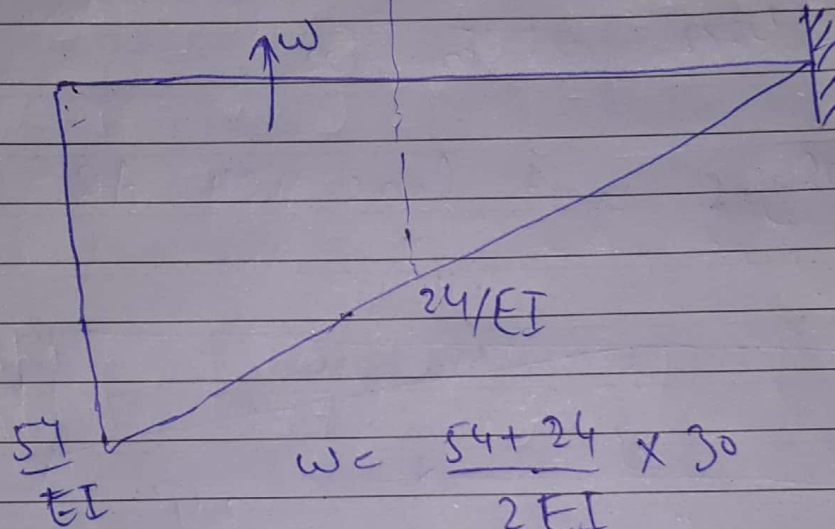 ω
24/EI
54/EI
ω = (54+24)/(2EI) × 30